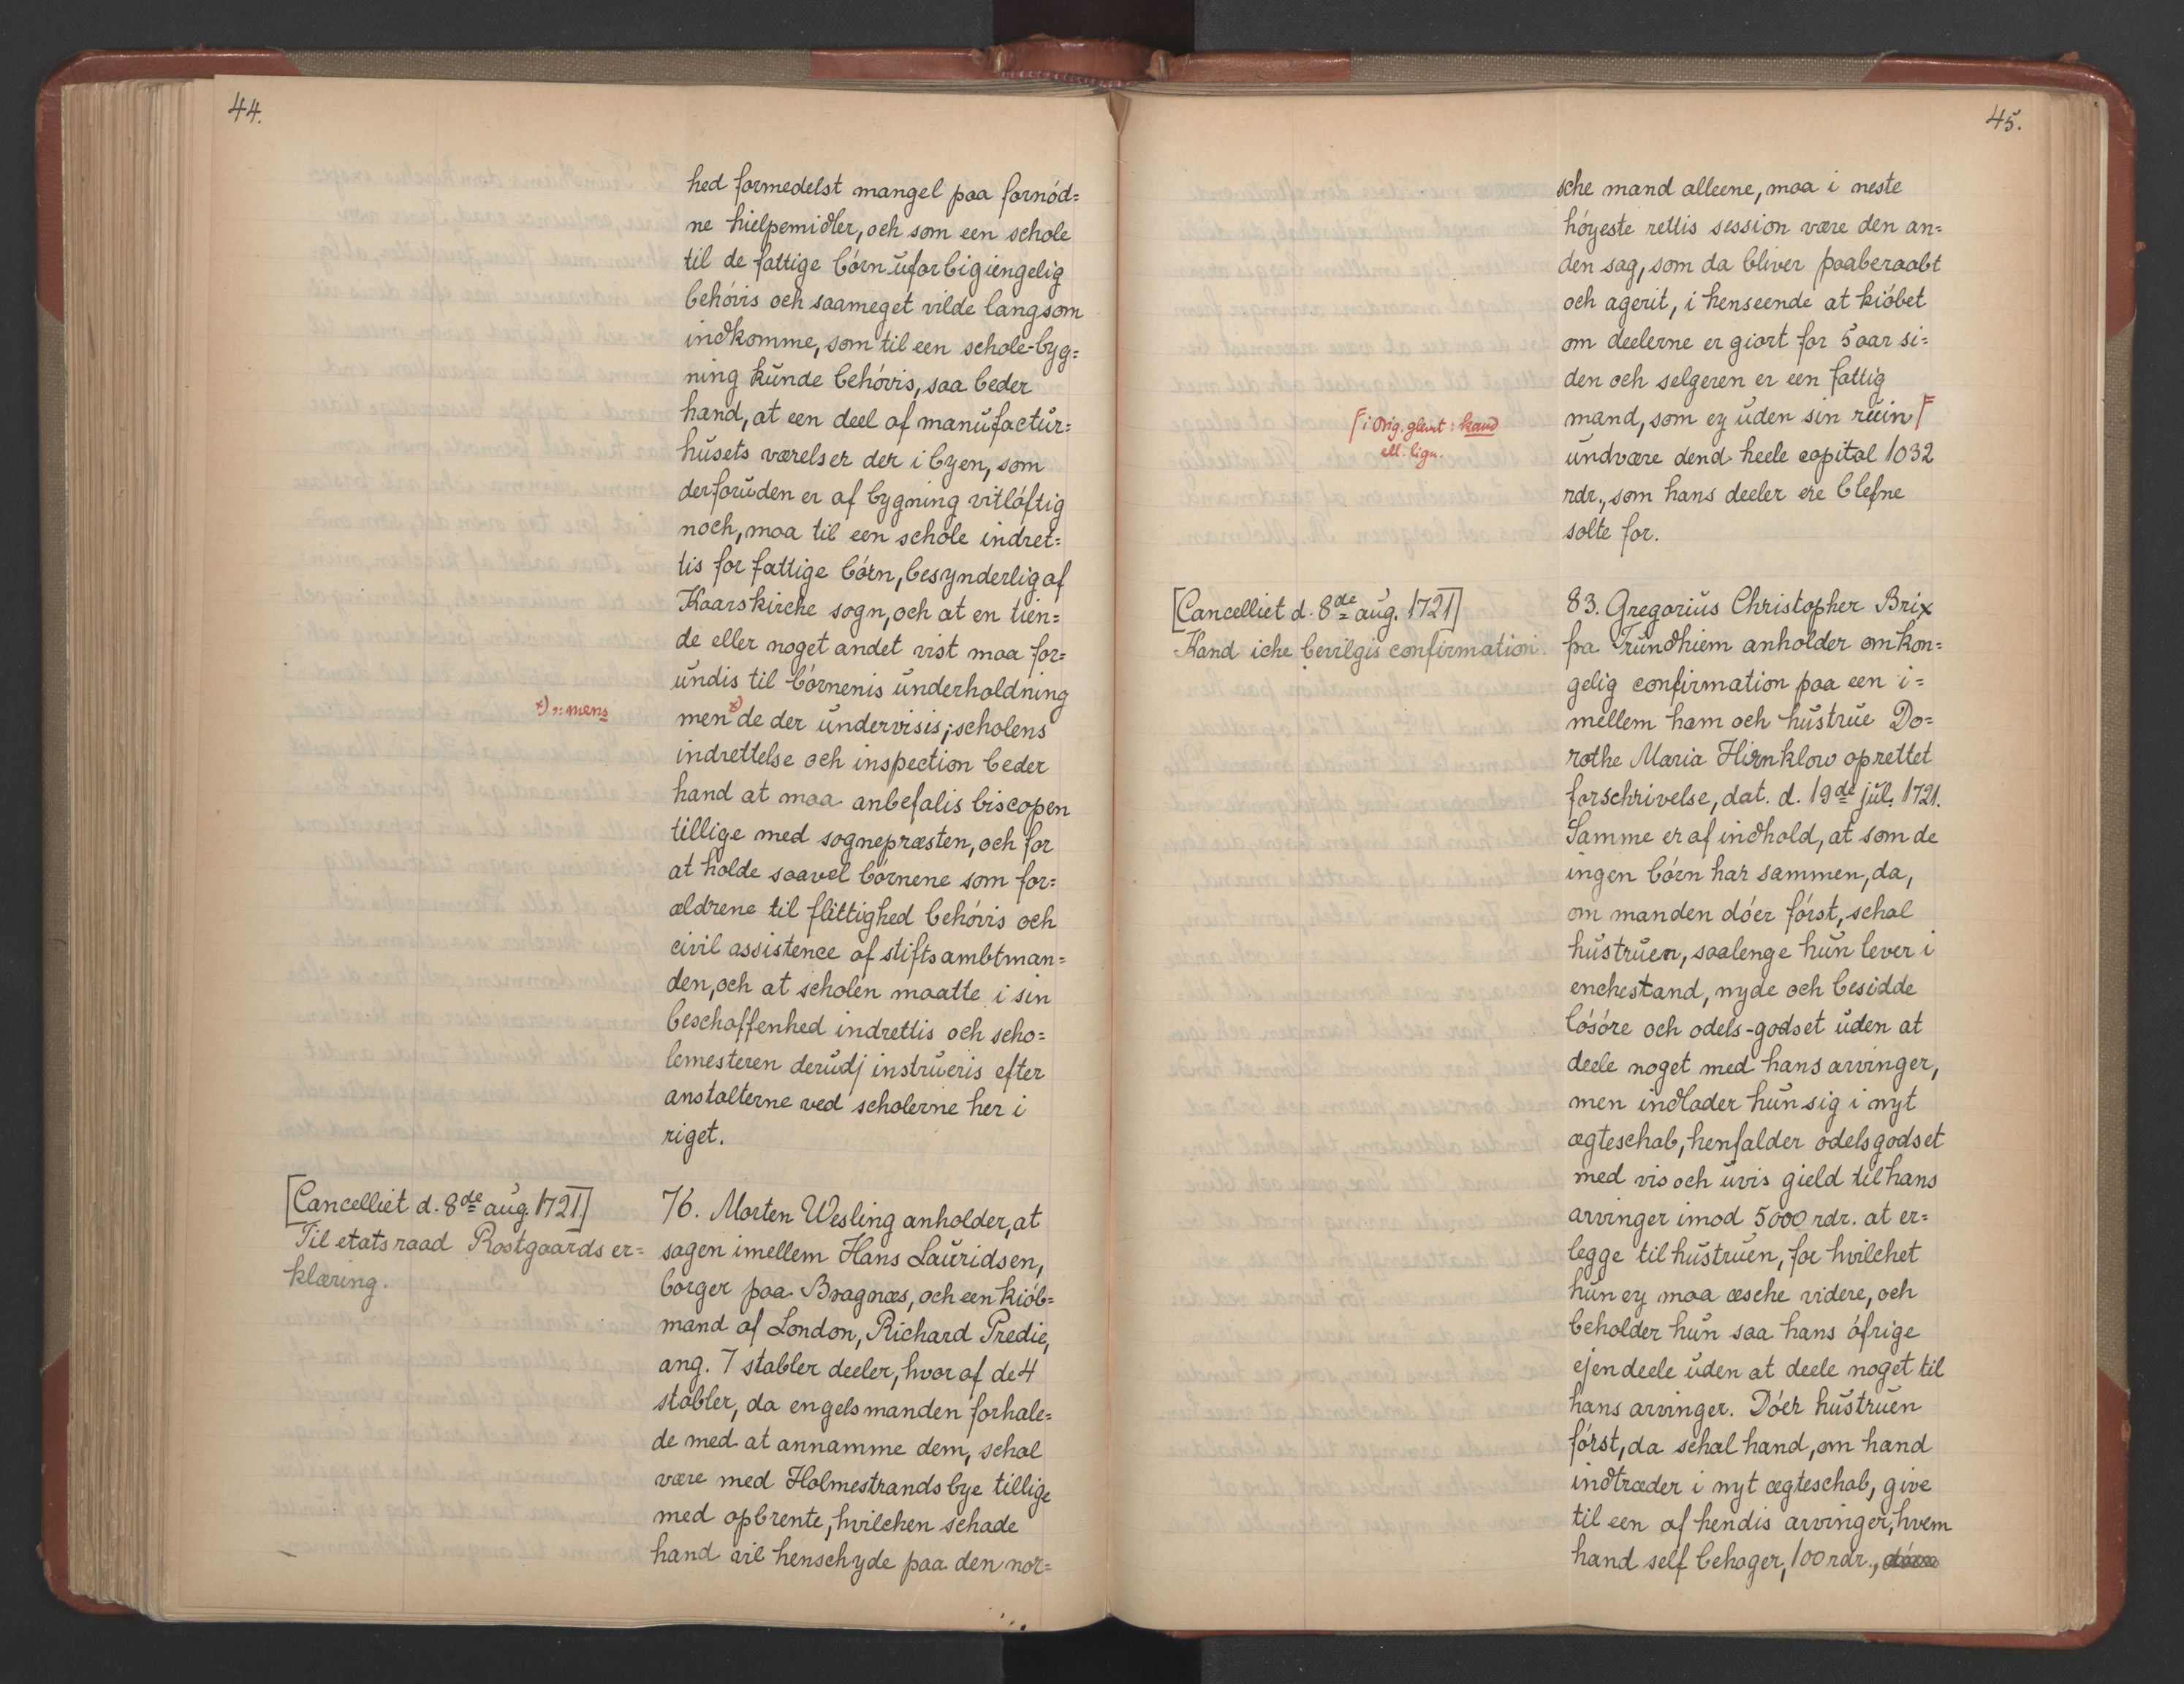 44.
hed formedelst mangel paa fornód=
ne hielpemidler, och som een schole
til de fattige bórn uforbigiengelig
behóvis och saameget vilde langsom
indkomme, som til een schole-byg=
ning kunde behóvis, saa beder
hand, at een deel af manufactur=
husets værelser der i byen, som
derforuden er af bygning vitlóftig
noch, maa til een schole indret=
tis for fattige bórn, besynderlig af
Kaarskirche sogn, och at en tien=
de eller noget andet vist maa for=
undis til bórnenis underholdning
x) ɔ: mens
men x) de der undervisis; scholens
indrettelse och inspection beder
hand at maa anbefalis biscopen
tillige med sognepræsten, och for
at holde saavel bórnene som for=
ældrene til flittighed behóvis och
civil assistence af stiftsambtman=
den, och at scholen maatte i sin
beschaffenhed indrettis och scho=
lemesteren derudj instrueris efter
anstalterne ved scholerne her i
riget.
[Cancelliet d. 8de aug. 1721.]
Til etatsraad Rostgaards er=
klæring.
76. Morten Wesling anholder, at
sagen imellem Hans Lauridsen,
borger paa Bragnæs, och een kiób=
mand af London, Richard Predie,
ang. 7 stabler deeler, hvor af de 4
stabler, da engelsmanden forhale=
de med at annamme dem, schal
være med Holmestrands bye tillige
med opbrente, hvilchen schade
hand vil henschyde paa den nor=
45.
sche mand alleene, maa i neste
hóyeste rettis session være den an=
den sag, som da bliver paaberaabt
och agerit, i henseende at kióbet
om deelerne er giort for 5 aar si=
den och selgeren er een fattig
mand, som ey uden sin ruin ꟻ
ꟻ i Orig. glemt: kand
ell. lign.
undvære dend heele capital 1032
rdr., som hans deeler ere blefne
solte for.
[Cancelliet d. 8de aug. 1721]
Kand iche bevilgis confirmation.
83. Gregorius Christopher Brix
pa Trundhiem anholder om kon=
gelig confirmation paa een i=
mellem ham och hustrue Do=
rothe Maria Hirnklow oprettet
forschrivelse, dat. d. 19de jul. 1721.
Samme er af indhold, at som de
ingen bórn har sammen, da,
om manden dóer fórst, schal
hustruen, saalenge hun lever i
enchestand, nyde och besidde
lósóre och odels-godset uden at
deele noget med hans arvinger,
men indlader hun sig i nyt
ægteschab, henfalder odelsgodset
med vis och uvis gield til hans
arvinger imod 5000 rdr. at er=
legge til hustruen, for hvilchet
hun ey maa æsche videre, och
beholder hun saa hans ófrige
ejendeele uden at deele noget til
hans arvinger. Dóer hustruen
fórst, da schal hand, om hand
indtræder i nyt ægteschab, give
til een af hendis arvinger, hvem
hand self behager, 100 rdr.,